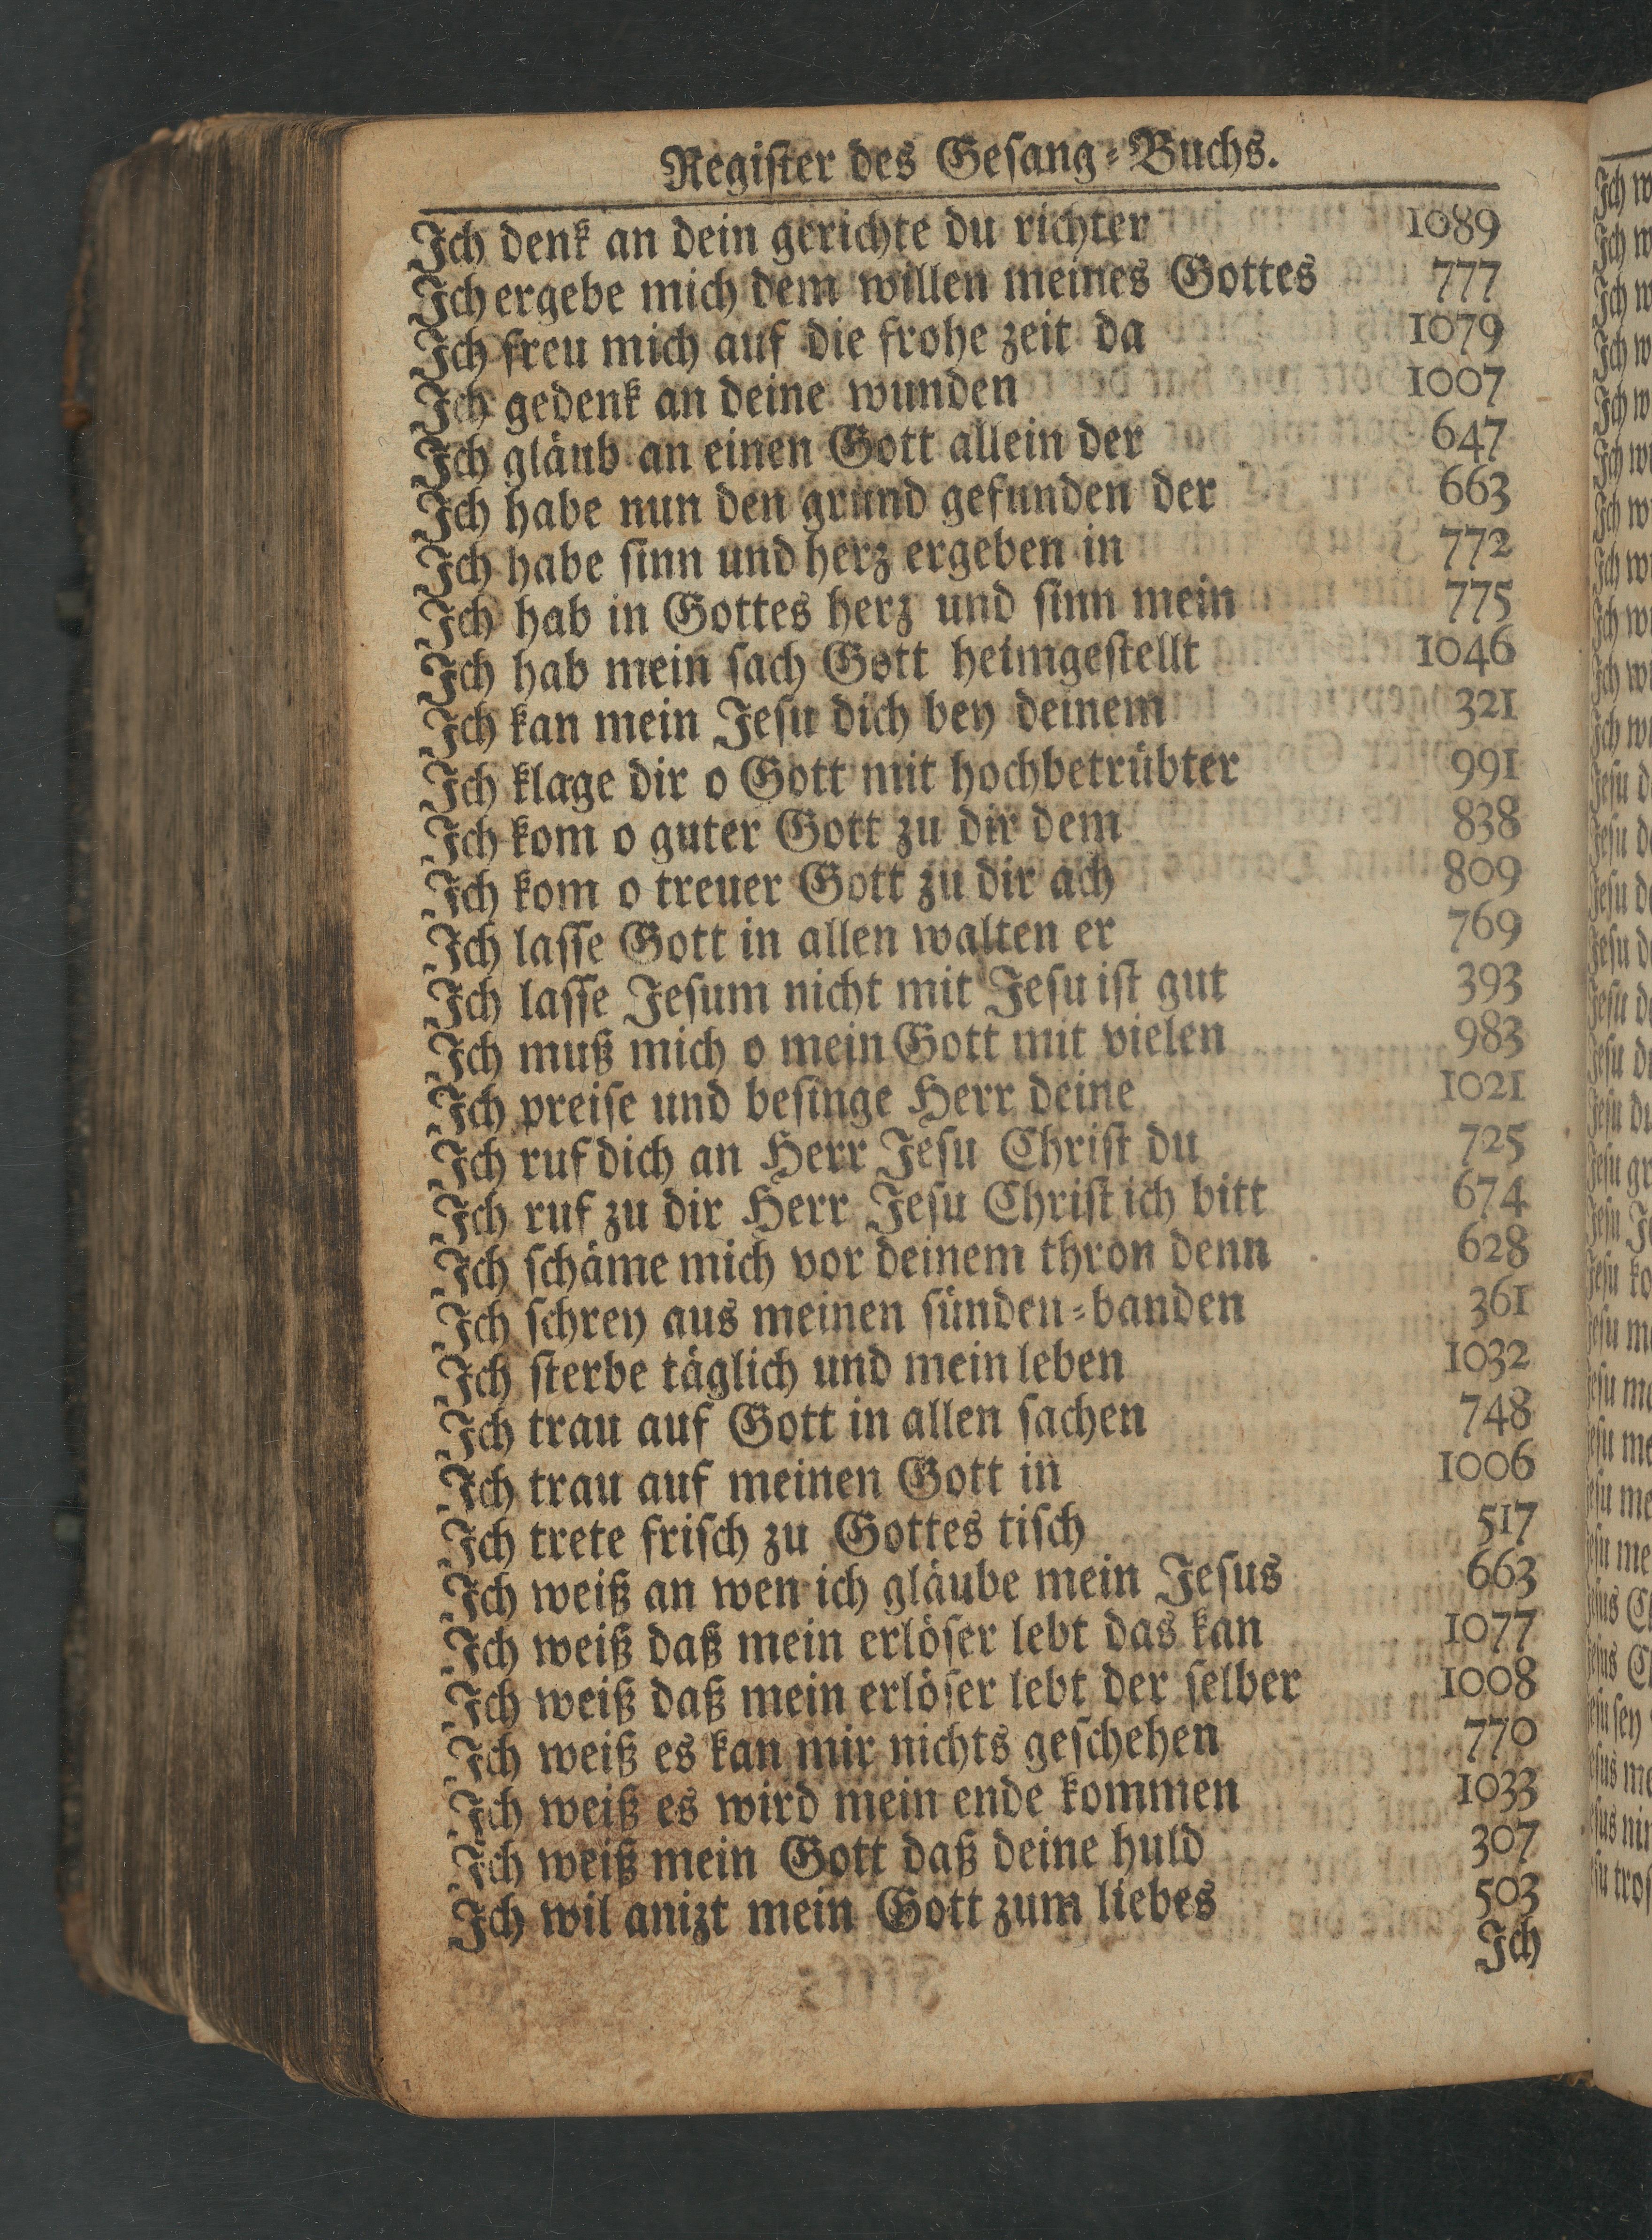 Register des Gesang-Buchs.
Ich denk an dein gerichte du richter 1089
Ich ergebe mich dem willen meines Gottes 777
Ich freu mich auf die frohe zeit da 1079
Ich gedenk an deine wunden 1007
Ich gläub an einen Gott allein der 647
Ich habe nun den grund gefunden der 663
Ich habe sinn und herz ergeben in 772
Ich hab in Gottes herz und sinn mein 775
Ich hab mein sach Gott heimgestellt 1046
Ich kan mein Jesu dich bey deinem 321
Ich klage dir o Gott mit hochbetrübter 991
Ich kom o guter Gott zu dir dem 838
Ich kom o treuer Gott zu dir ach 809
Ich lasse Gott in allen walten er 769
Ich lasse Jesum nicht mit Jesu ist gut 393
Ich muß mich o mein Gott mit vielen 983
Ich preise und besinge Herr deine 1021
Ich ruf dich an Herr Jesu Christ du 725
Ich ruf zu dir Herr Jesu Christ ich bitt 674
Ich schäme mich vor deinem thron denn 628
Ich schrey aus meinen sünden-banden 361
Ich sterbe täglich und mein leben 1032
Ich trau auf Gott in allen sachen 748
Ich trau auf meinen Gott in 1006
Ich trete frisch zu Gottes tisch 517
Ich weiß an wen ich gläube mein Jesus 663
Ich weiß daß mein erlöser lebt das kan 1077
Ich weiß daß mein erlöser lebt der selber 1008
Ich weiß es kan mir nichts geschehen 770
Ich weiß es wird mein ende kommen 1033
Ich weiß mein Gott daß deine huld 307
Ich wil anizt mein Gott zum liebes 503
Ich